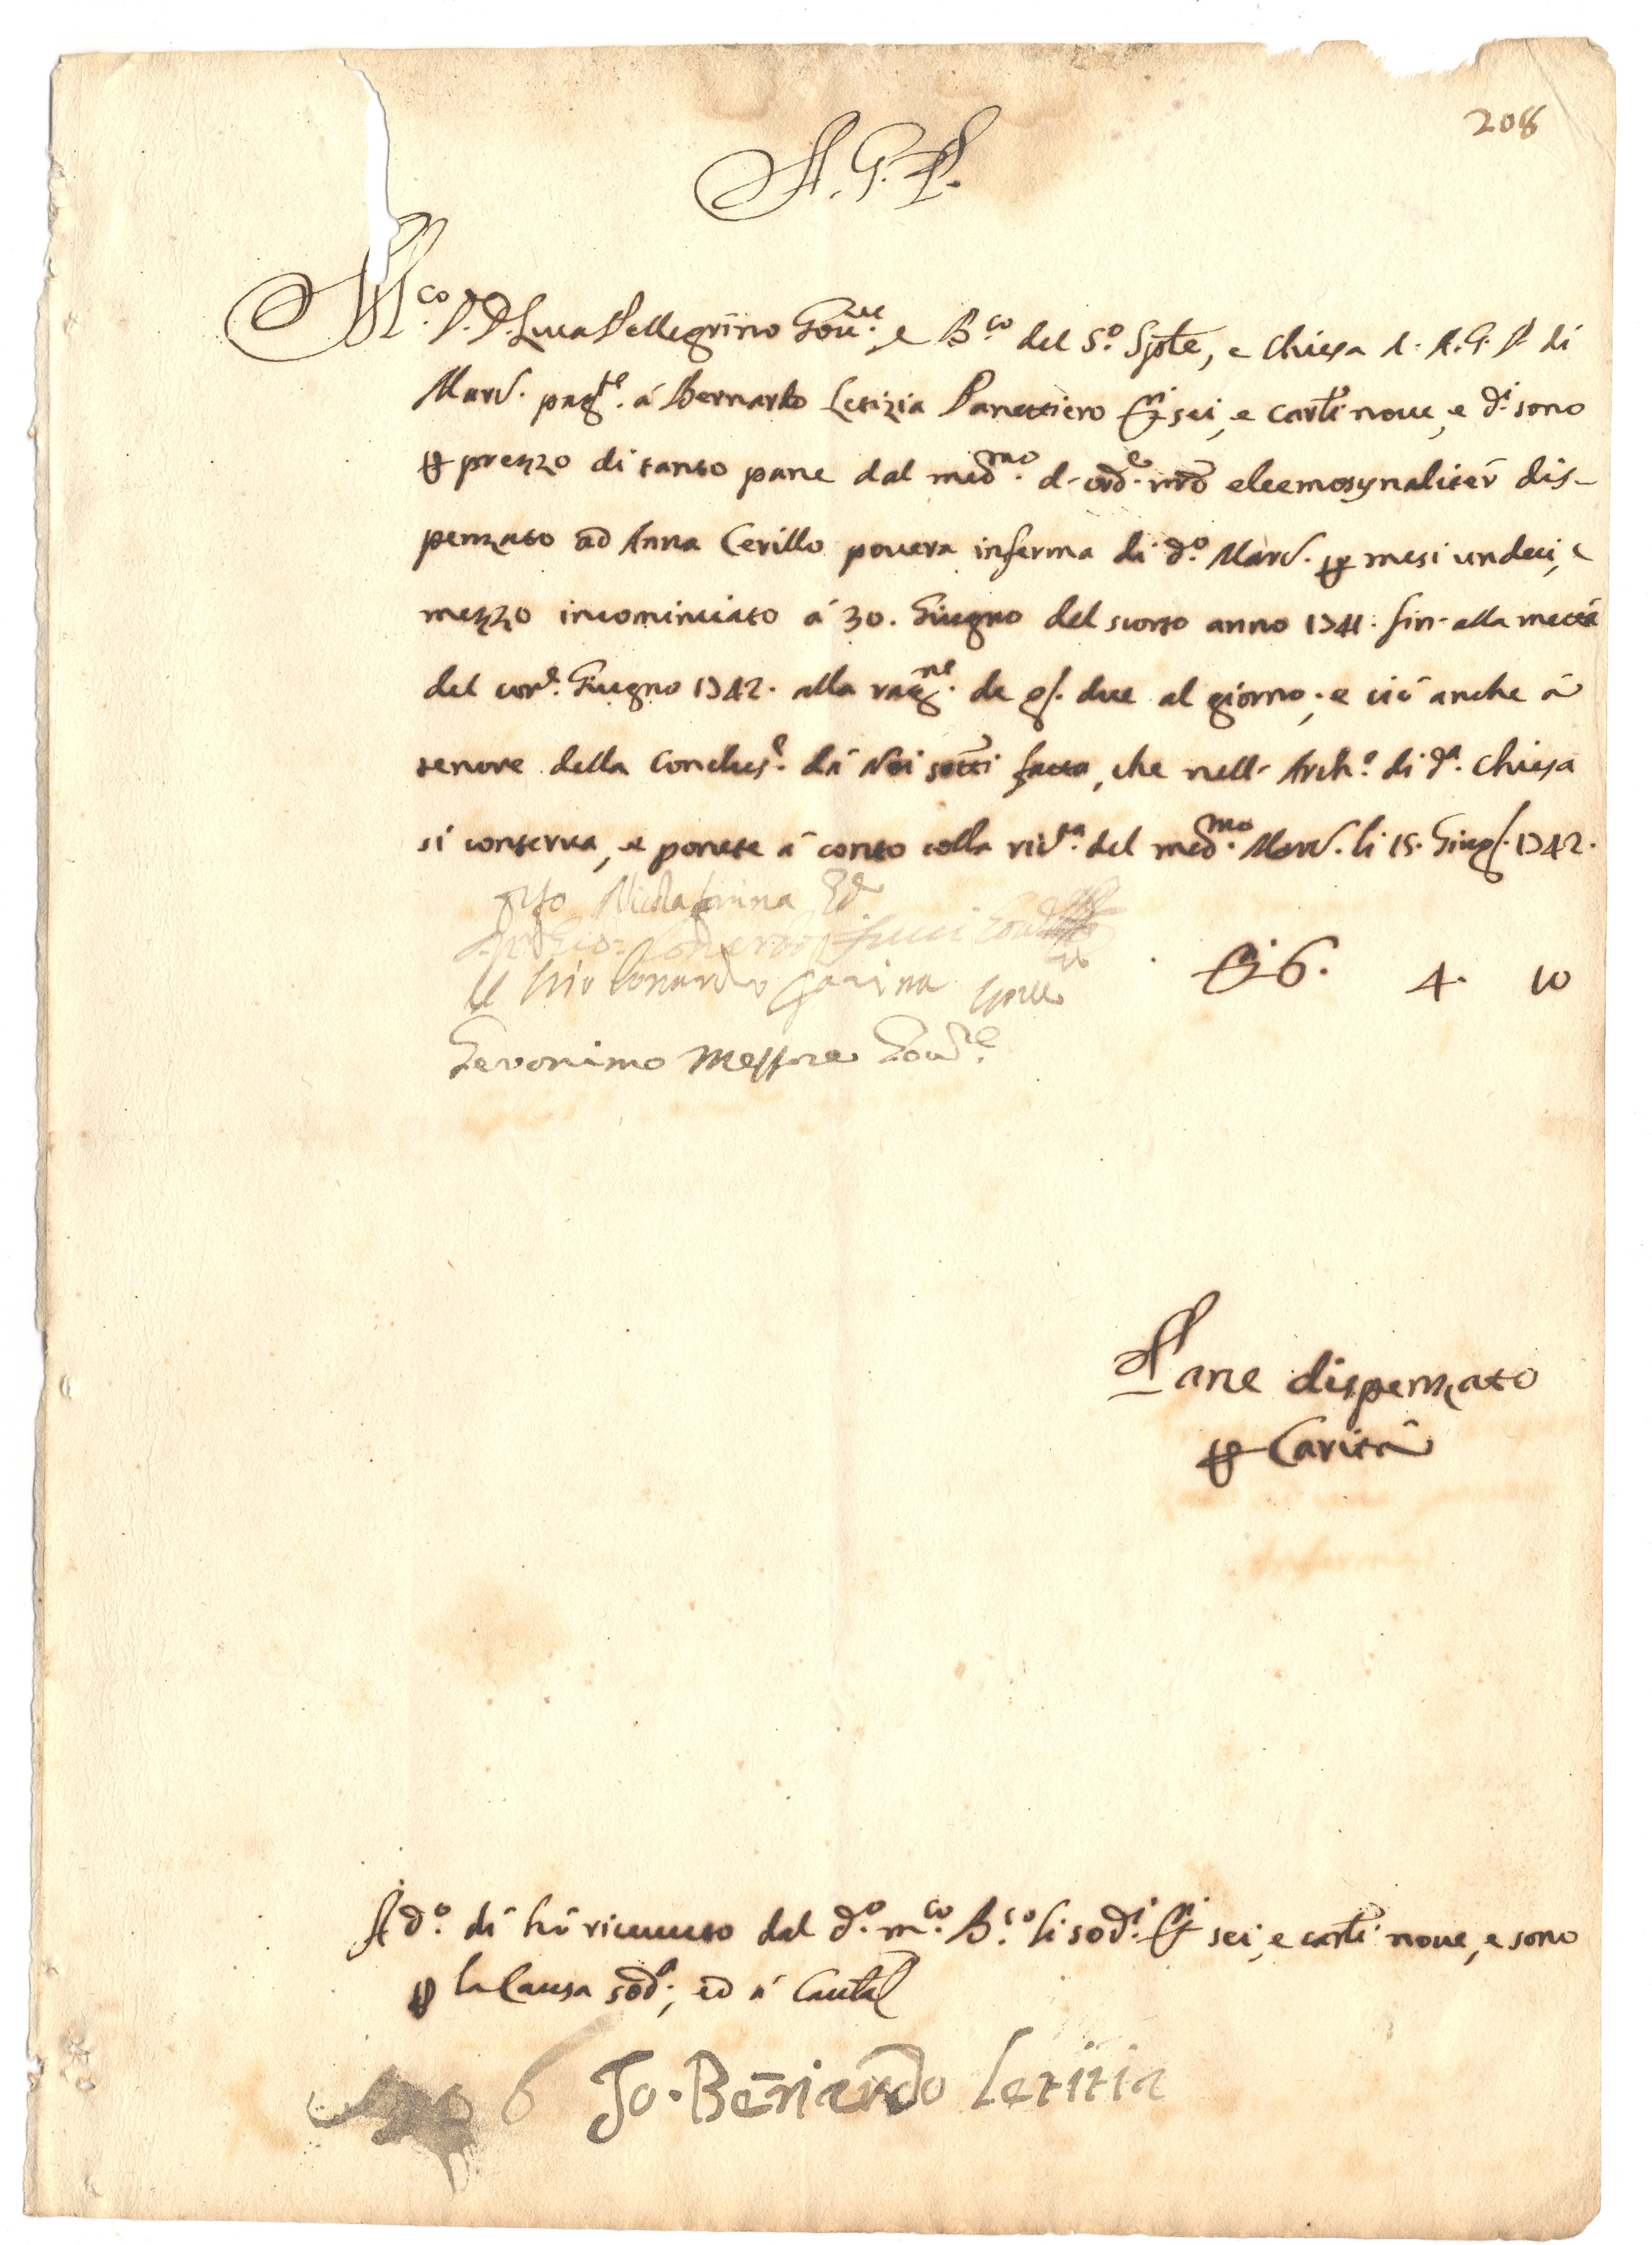 208
A. G. P.
M.co S. D. Luca Pellegrino Gov.re, e B.co del S.o Spte, e Chiesa A. G. P. di
Mard. pag.te á Bernardo Letizia Panettiero D.i sei, e carlni nove, e d.i sono
per prezzo di tanto pane dal med.mo d'ord.e nrõ eleemosynalitér dis-
penzato ad Anna Cerillo povera inferma di d.o Mard. per mesi undeci, e
mezzo incominciato á 30. Giugno del scorso anno 1741. fin'alla metá
del cor.e Giugno 1742. alla rag.ne de g. due al giorno; e ció anche á
tenore della Conclus.e dá Noi sotti fatta, che nell'Arch.o di d.a Chiesa
si conserva, e ponete á conto colla ric.ta del med.mo Mard. li 15. Giug. 1742.
Farina
D. 6. 4. 10
Geronimo Messore Gov.re
Pane dispenzato
per Caritá
A d.o dí hó ricevuto dal d.o m.co B.co li sod.i D.i sei, e carlni nove, e sono
per la Causa sod.a, ed á Cautel
Io. Bernardo Letitia